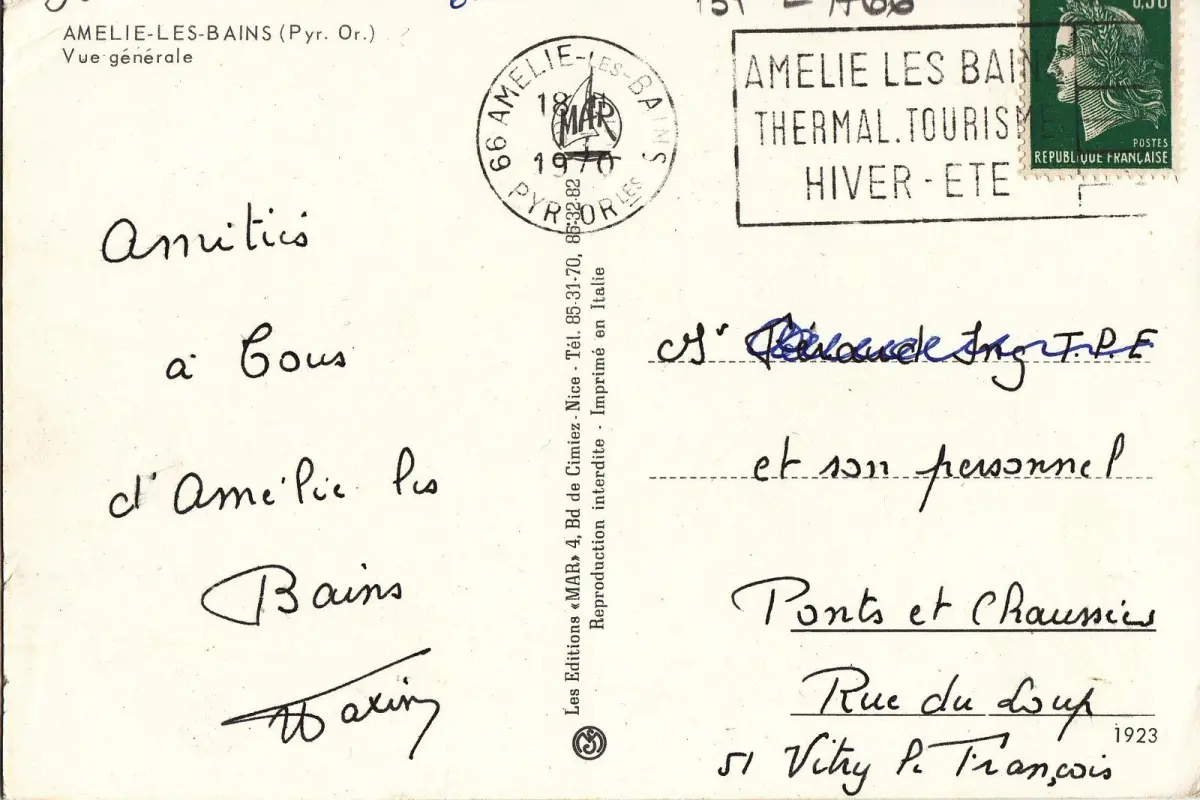 AMELIE-LES-BAINS (Pyr. Or.)
Vue générale
Amitiés
à Tous
d'Amélie les
Bains
66 AMELIE-LES-BAINS
18
MAR
1970
PYR. OR LES
AMELIE LES BAINS
THERMAL.TOURISME
HIVER - ETE
0,30
POSTES
REPUBLIQUE FRANÇAISE
Les Editions «MAR» 4, Bd de Cimiez - Nice - Tél. 85-31-70, 85-32-82
Reproduction interdite - Imprimé en Italie
Mr Ing T.P.E
et son personnel
Ponts et Chaussées
Rue du Loup
1923
51 Vitry le François